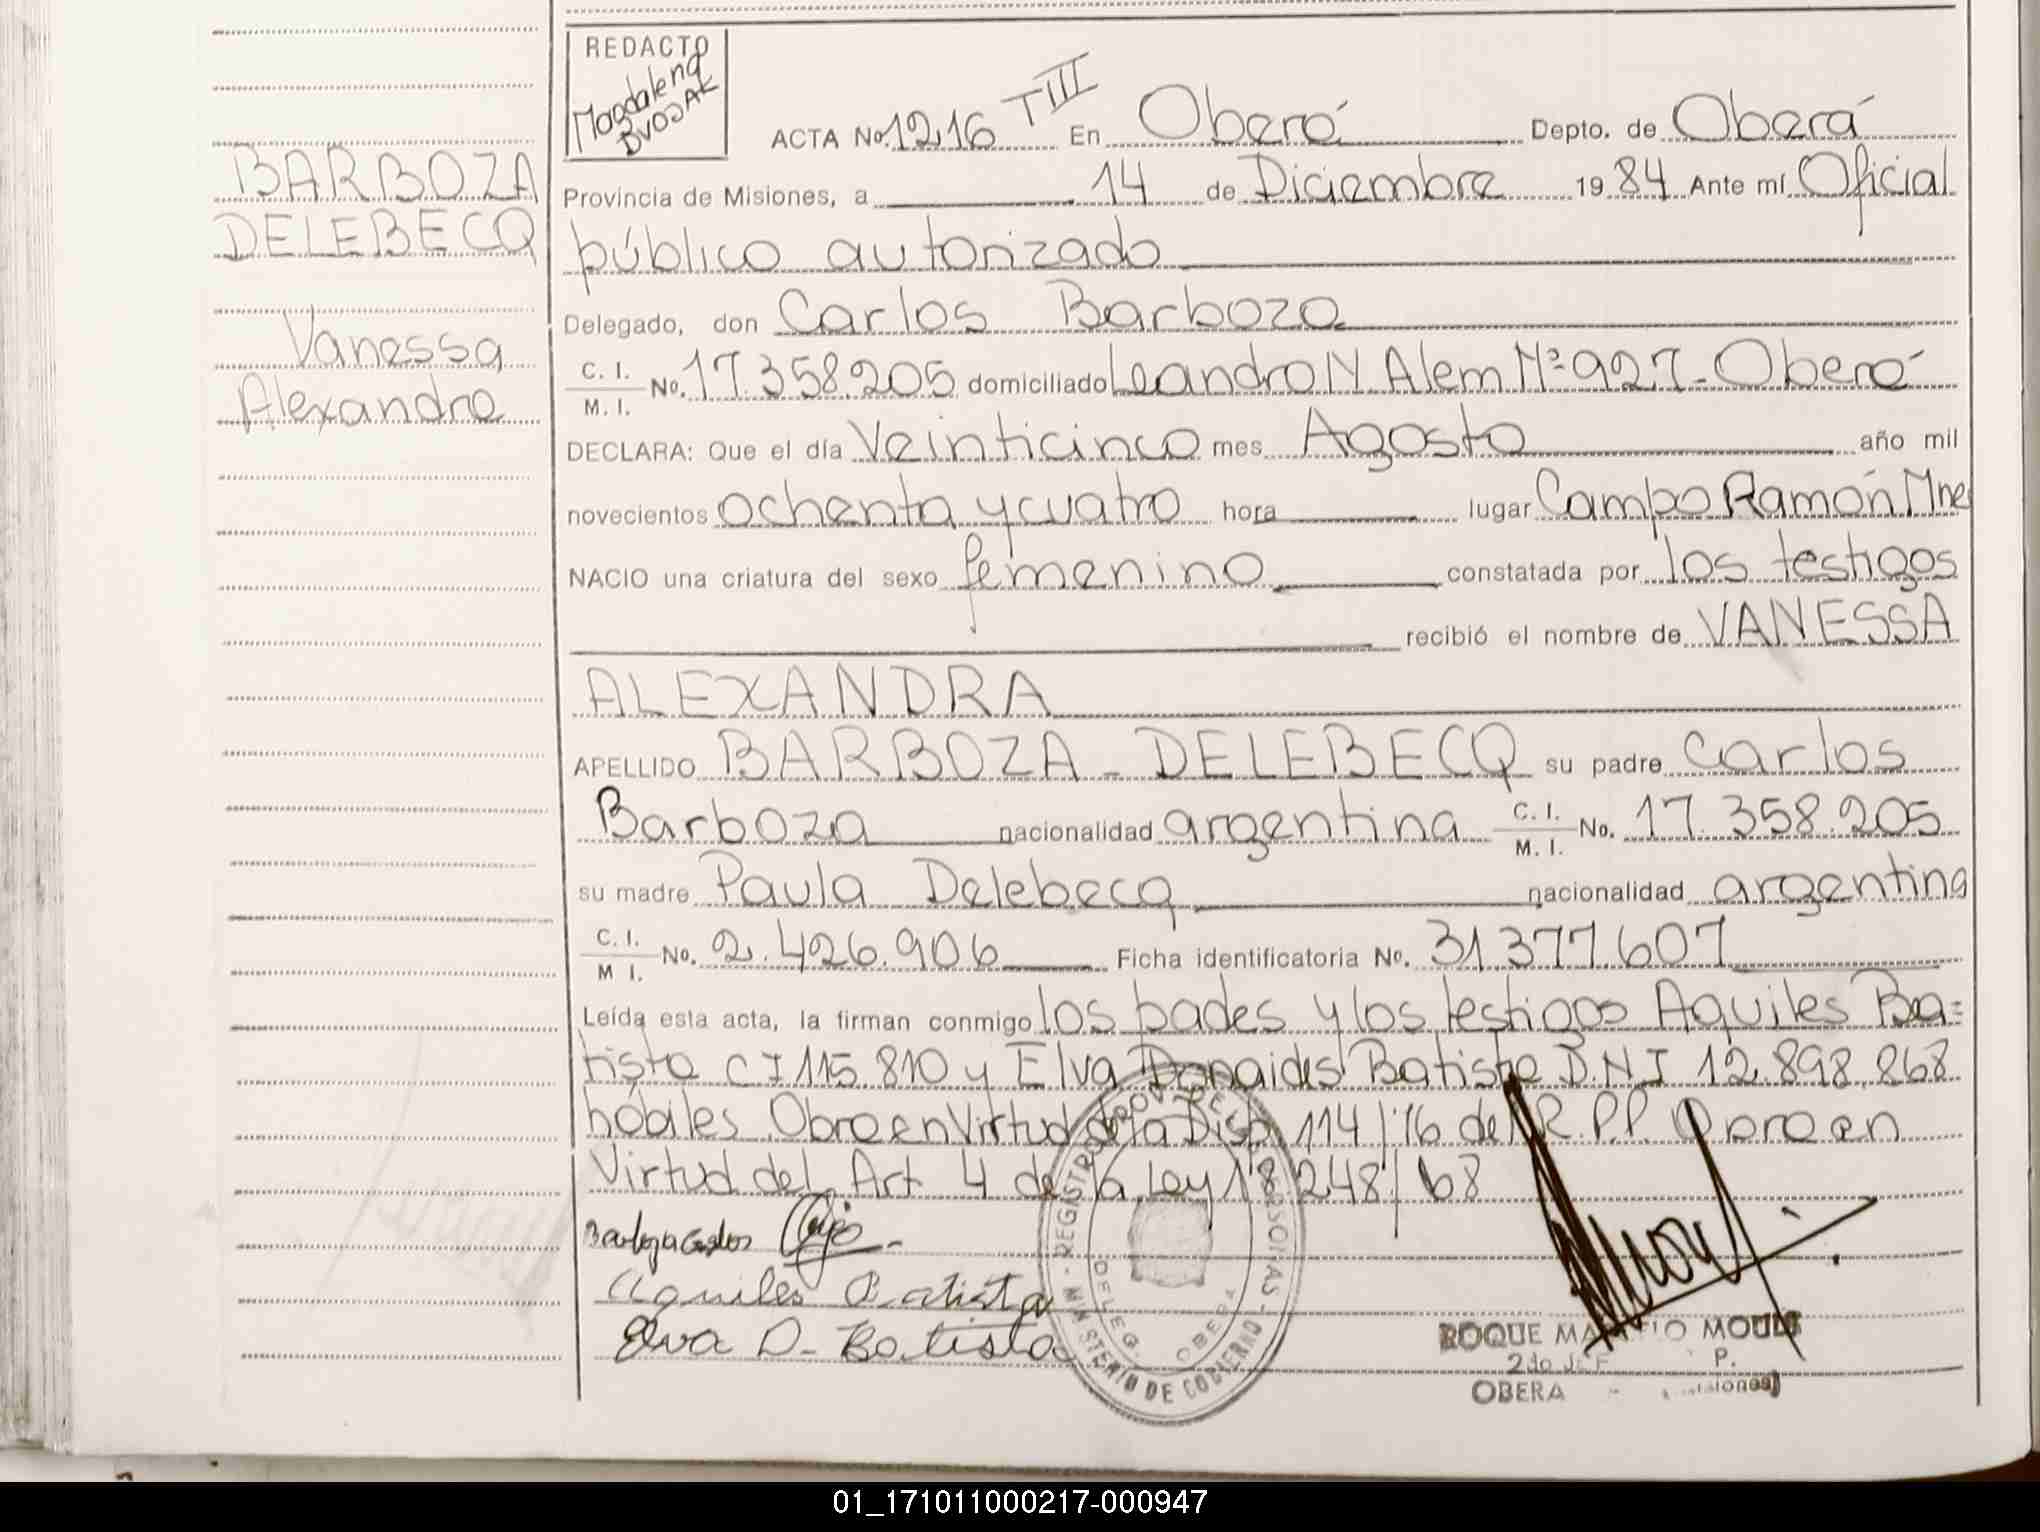 REDACTO
Magdalena
BVOJAK
ACTA No. 1216 TIII En Oberá Depto. de Oberá
BARBOZA
DELEBECQ
Vanessa
Alexandra
Provincia de Misiones, a 14 de Diciembre 19 84 Ante mí Oficial
público autorizado
Delegado, don Carlos Barboza
C. I. M. I. No. 17.358.205 domiciliado Leandro N. Alem Nº 927 - Oberá
DECLARA: Que el día Veinticinco mes Agosto año mil
novecientos ochenta y cuatro hora lugar Campo Ramón Mnes
NACIO una criatura del sexo femenino constatada por los testigos
recibió el nombre de VANESSA
ALEXANDRA
APELLIDO BARBOZA - DELEBECQ su padre Carlos
Barboza nacionalidad argentina C. I. M. I. No. 17.358.205
su madre Paula Delebecq nacionalidad argentina
C. I. M I. No. 2.426.906 Ficha identificatoria No. 31.377.607
Leída esta acta, la firman conmigo los pades y los testigos Aquiles Ba=
tista C I 115.810 y Elva Danaides Batista D.N.I 12.898.868
hábiles. Obra en Virtud de la Disp. 114/76 del R.P.P. Obra en
Virtud del Art 4 de la Ley 18.248/68
Barboza Carlos
Aquiles Batista
Elva D. Batista
REGISTRO PROV. DE LAS PERSONAS - MINISTERIO DE GOBIERNO
DELEG. OBERA
ROQUE MOULS
2do P.
OBERA
01_171011000217-000947